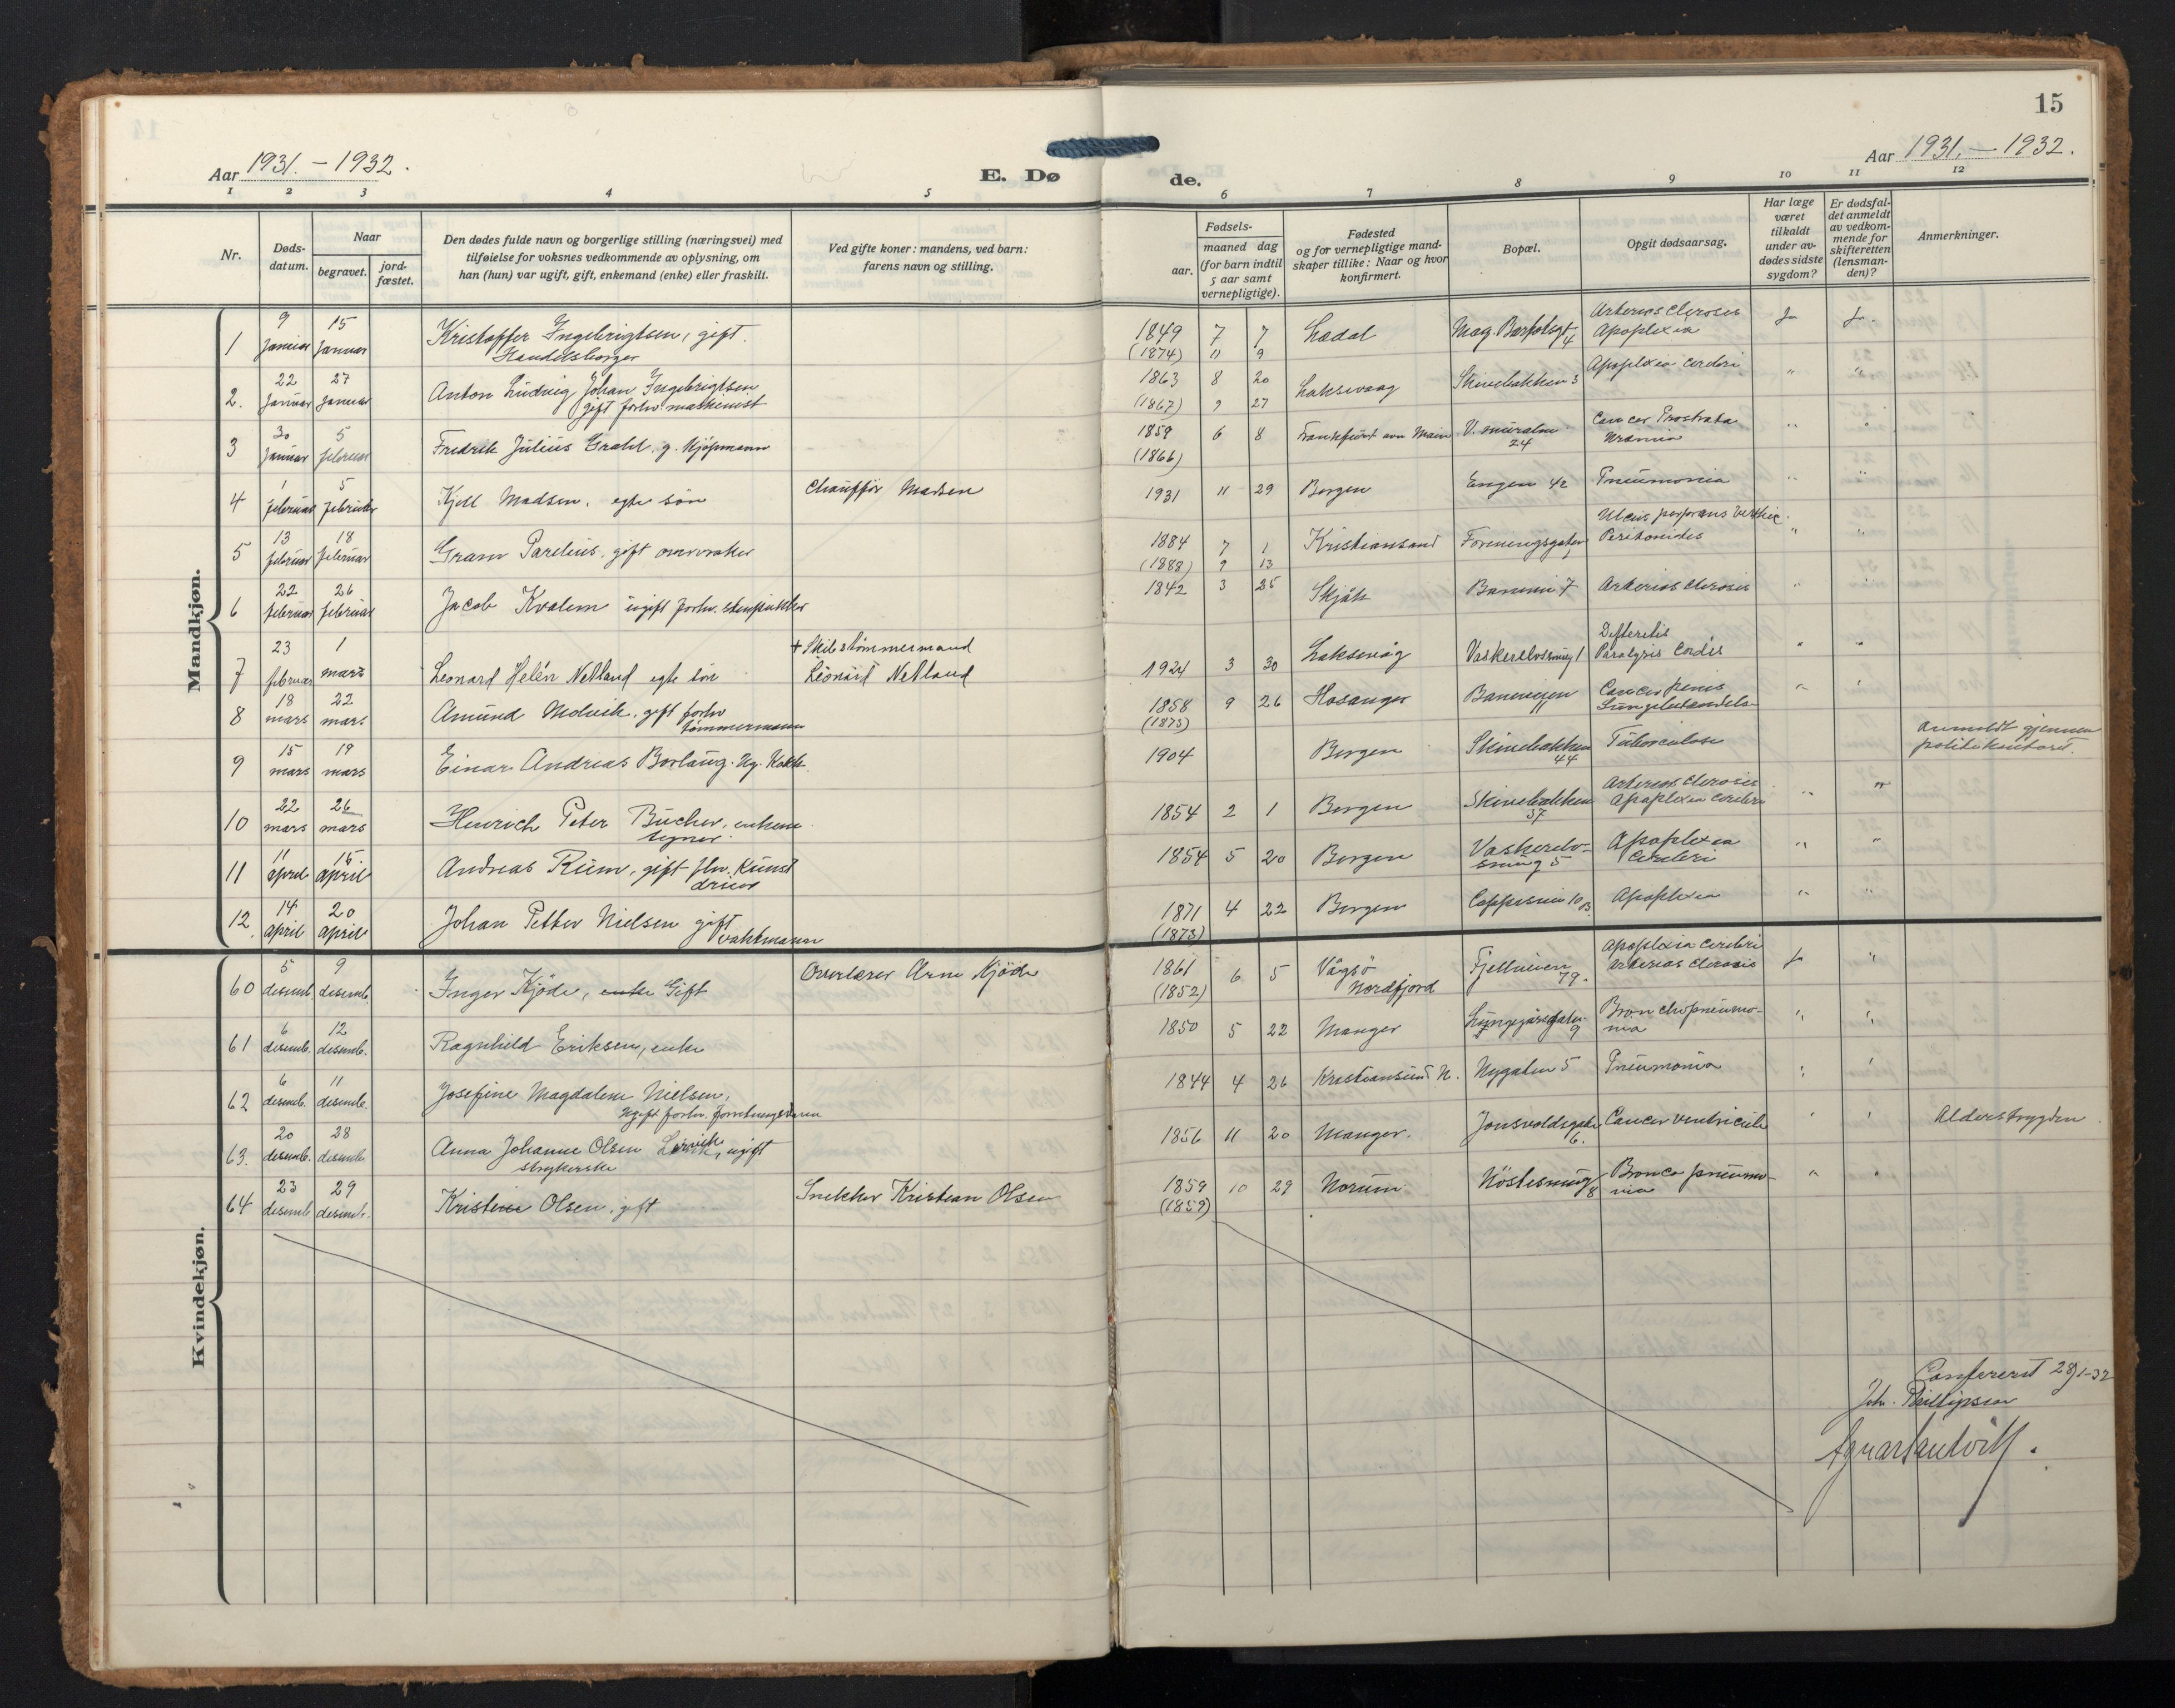 15
Aar 1931. - 1932.
E. Dø de.
Aar 1931. - 1932.
1 2 3 4 5 6 7 8 9 10 11 12
Nr.
Døds-
datum.
Naar
begravet.
jord-
fæstet.
Den dødes fulde navn og borgerlige stilling (næringsvei) med
tilføielse for voksnes vedkommende av oplysning, om
han (hun) var ugift, gift, enkemand (enke) eller fraskilt.
Ved gifte koner: mandens, ved barn:
farens navn og stilling.
Fødsels-
aar.
maaned dag
(for barn indtil
5 aar samt
vernepligtige).
Fødested
og for vernepligtige mand-
skaper tillike: Naar og hvor
konfirmert.
Bopæl.
Opgit dødsaarsag.
Har læge
været
tilkaldt
under av-
dødes sidste
sygdom?
Er dødsfal-
det anmeldt
av vedkom-
mende for
skifteretten
(lensman-
den)?
Anmerkninger.
Mandkjøn.
9 15 Arterios clerosis
1 Januar Januar Kristoffer Ingebrigtsen, gift. 1849 7 7 Ladal Apoplexia Ja Ja.
Handelsborger (1874) 11 9 4
22 27 Apoplexia cerebri
2. Januar Januar Anton Ludvig Johan Ingebrigtsen 1863 8 20 Laksevaag Skivebakken 3 " "
gift forhv. maskinist (1867) 9 27
30 5 Cancer Prostrata
3 Januar februar Fredrik Julius Grahl, g. Kjøpmann 1859 6 8 Frankfurt am Main V. muralm. 24 Uræmia " "
(1866)
1 5
4 februar februar Kjell Madsen, egte søn Chauffør Madsen 1931 11 29 Bergen Engen 42 Pneumonia " "
13 18 Ulcus perforans
5 februar februar Gram Parelius, gift 1884 7 1 Kristiansand Foreningsgaten Peritonitis " "
(1888) 9 13
22 26
6 februar februar Jacob Kvalem ugift forhv. 1842 3 25 Skjåk 7 Arterios clerosis " "
23 1 + Skibstømmermand Difteritis
7 februar mars Leonard Helén Netland egte søn Leonard Netland 1924 3 30 Laksevåg Vaskerelvsmug 1 Paralysis Cordis " "
18 22
8 mars mars Amund Molvik, gift forhv 1858 9 26 Hosanger Baneveien 11 Cancer penis
tømmermann (1873)
15 19 Anmeldt gjennem
9 mars mars Einar Andreas Borlaug. Ug. Kokk. 1904 Bergen Skivebakken 44 Tuberculose politikontoret.
22 26 Arterios clerosis
10 mars mars Henrich Peter Bücher, enkem. 1854 2 1 Bergen Skivebakken 37 Apoplexia cerebri " "
tegner
11 15.
11 april april Andreas Rum, gift fhv. Kunst 1854 5 20 Bergen Vaskerelv- Apoplexia " "
dreier smug 5 Cerebri
14 20
12. april april Johan Petter Nielsen gift 1871 4 22 Bergen 10 B. Apoplexia " "
vaktmann (1873)
Kvindekjøn.
5 9 Apoplexia cerebri
60 desemb. desemb. Inger Kjöde, enke Gift Overlærer Arne Kjöde 1861 6 5 Vågsö Fjellveien 79. Arterios clerosis Ja "
(1852) Nordfjord
6 12
61 desemb. desemb. Ragnhild Eriksen, enke 1850 5 22 Manger 9 Bronchopneumo- " "
nia
6 11
62 desemb. desemb. Josefine Magdalene Nielsen, 1844 4 26 Kristiansund N. Nygaten 5 Pneumonia " "
Ugift forhv.
20 28
63. desemb. desemb. Anna Johanne Olsen Lervik, ugift 1856 11 20 Manger. Jonsvoldsgate 6. Cancer ventriculi " " Alderstrygden.
strykerske
23 29
64 desemb. desemb. Kristine Olsen, gift Snekker Kristian Olsen 1859 10 29 Norum Nöstesmug 8 Bronco pneumo- " "
(1859) nia
Konfereret 28/1-32
Joh. Phillipsen